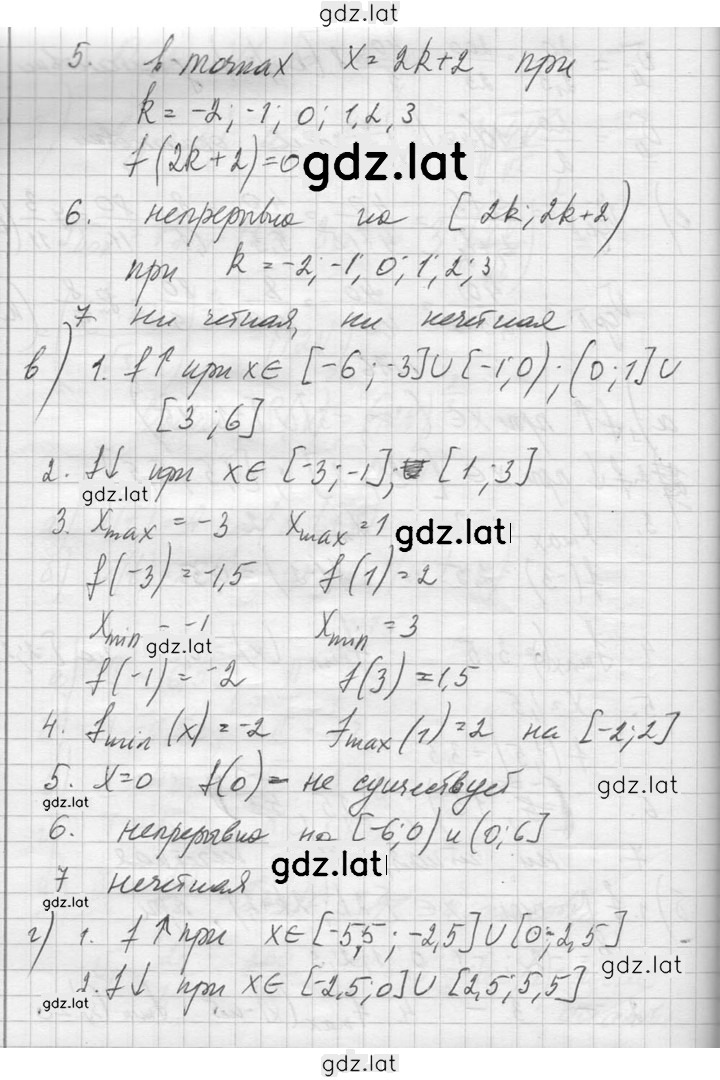 gdz.lat
5. в точках x = 2k+2 при
k = -2; -1; 0; 1, 2, 3
f(2k+2)=0
gdz.lat
6. непрерывна на [2k; 2k+2)
при k = -2; -1; 0; 1; 2; 3
7 ни четная, ни нечетная
в) 1. f↑ при x∈ [-6; -3]∪[-1; 0); (0; 1]∪
[3; 6]
2. f↓ при x∈ [-3; -1]; [1; 3]
gdz.lat
3. xmax = -3 xmax = 1
gdz.lat
f(-3) = -1,5 f(1) = 2
xmin = -1 xmin = 3
gdz.lat
f(-1) = -2 f(3) = 1,5
4. fmin(x) = -2 fmax(1) = 2 на [-2; 2]
5. x=0 f(0) – не существует
gdz.lat
gdz.lat
6. непрерывна на [-6; 0) и (0; 6]
gdz.lat
7 нечетная
gdz.lat
г) 1. f↑ при x∈ [-5,5; -2,5]∪[0; 2,5]
gdz.lat
2. f↓ при x∈ [-2,5; 0]∪[2,5; 5,5]
gdz.lat
gdz.lat